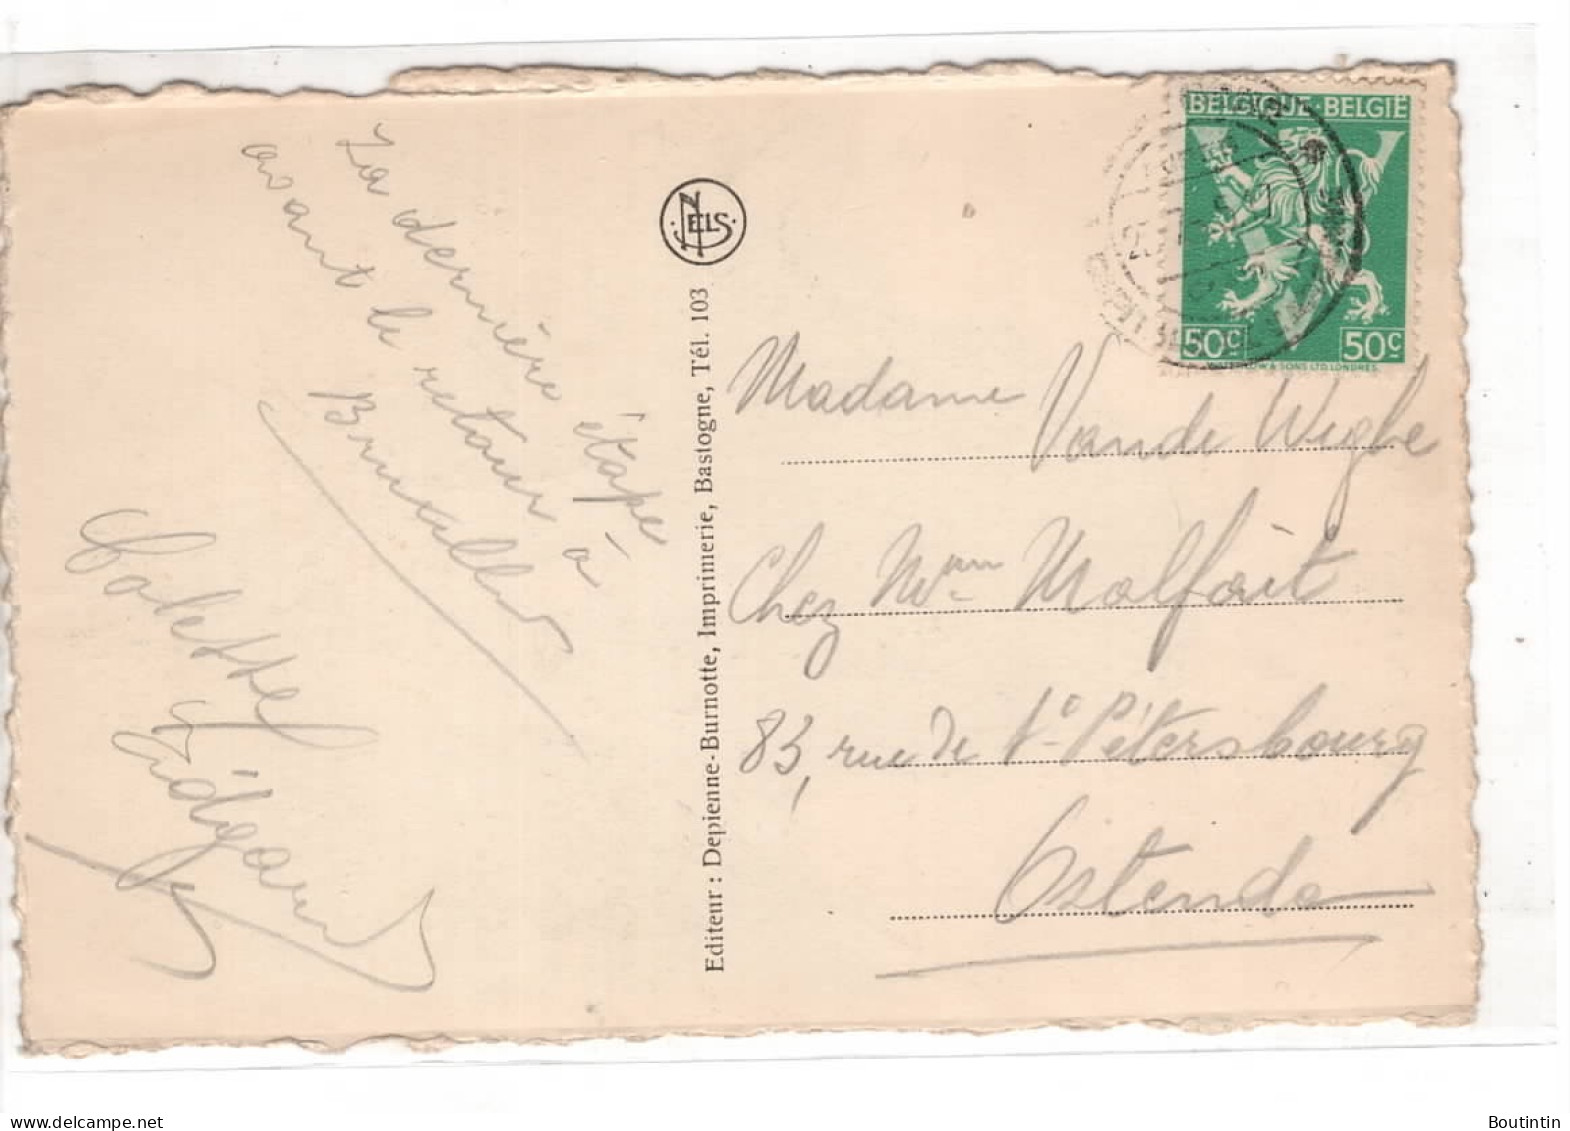 La dernière étape
avant le retour à
Bruxelles
Colette
Edgard
NELS
Editeur : Depienne-Burnotte, Imprimerie, Bastogne, Tél. 103
BELGIQUE·BELGIË
50c 50c
WATERLOW & SONS LTD. LONDRES.
Madame Vande Weghe
Chez Mme Molfait
83, rue de St Pétersbourg
Ostende
delcampe.net
Boutintin